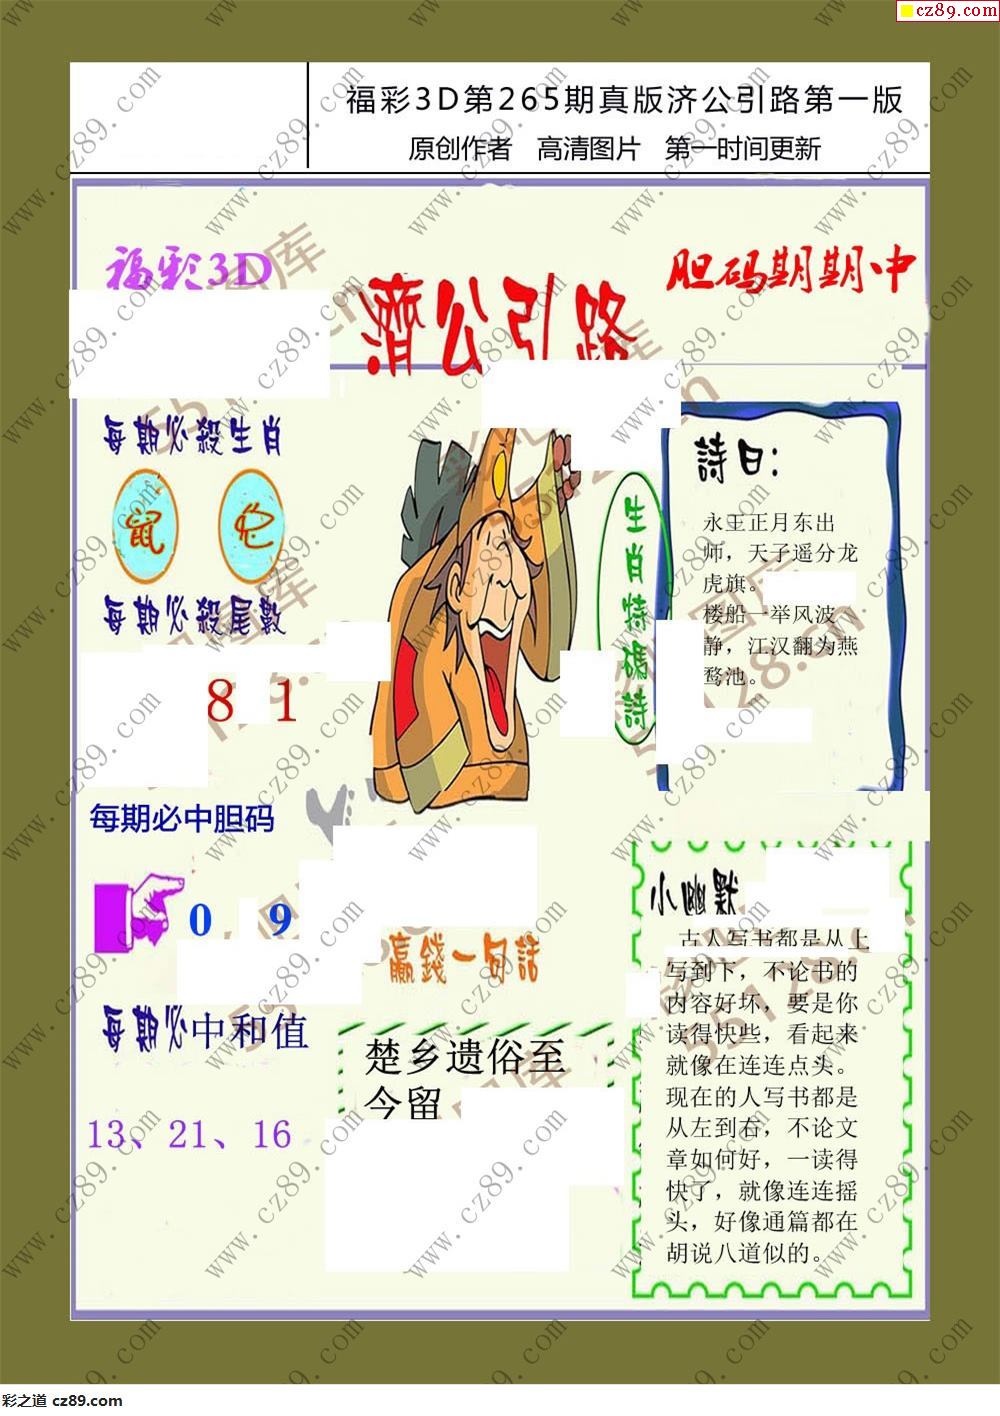 cz89.com
福彩3D第265期真版济公引路第一版
原创作者 高清图片 第一时间更新
福彩3D
濟公引路
胆码期期中
每期必殺生肖
鼠
每期必殺尾数
8 1
每期必中胆码
0 9
每期必中和值
13、21、16
生肖特碼詩
詩曰：
永王正月东出
师，天子遥分龙
虎旗。
楼船一举风波
静，江汉翻为燕
鹜池。
赢錢一句話
楚乡遗俗至
今留
小幽默
古人写书都是从上
写到下，不论书的
内容好坏，要是你
读得快些，看起来
就像在连连点头。
现在的人写书都是
从左到右，不论文
章如何好，一读得
快了，就像连连摇
头，好像通篇都在
胡说八道似的。
www.cz89.com
55128.cn
彩之道 cz89.com